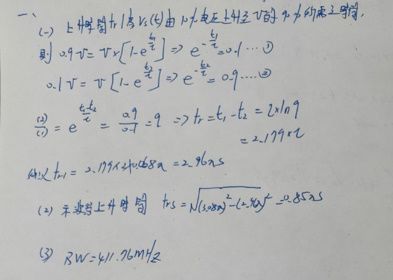 一、
(一) 上升时间tr1是Vr(t)由10%电压上升至V的90%的需要时间,
则 0.9V = V[1-e^{-t1/τ}] => e^{-t1/τ} = 0.1 ...①
0.1V = V[1-e^{-t2/τ}] => e^{-t2/τ} = 0.9 ...②
(2)/(1) = e^{(t1-t2)/τ} = 0.9/0.1 = 9 => tr = t1-t2 = τ×ln9
= 2.197×τ
tr1 = = 2.96ns
(2) 上升时间 trs = √((3.08ns)²-(2.96)²) = 0.85ns
(3) BW=411.76MHz